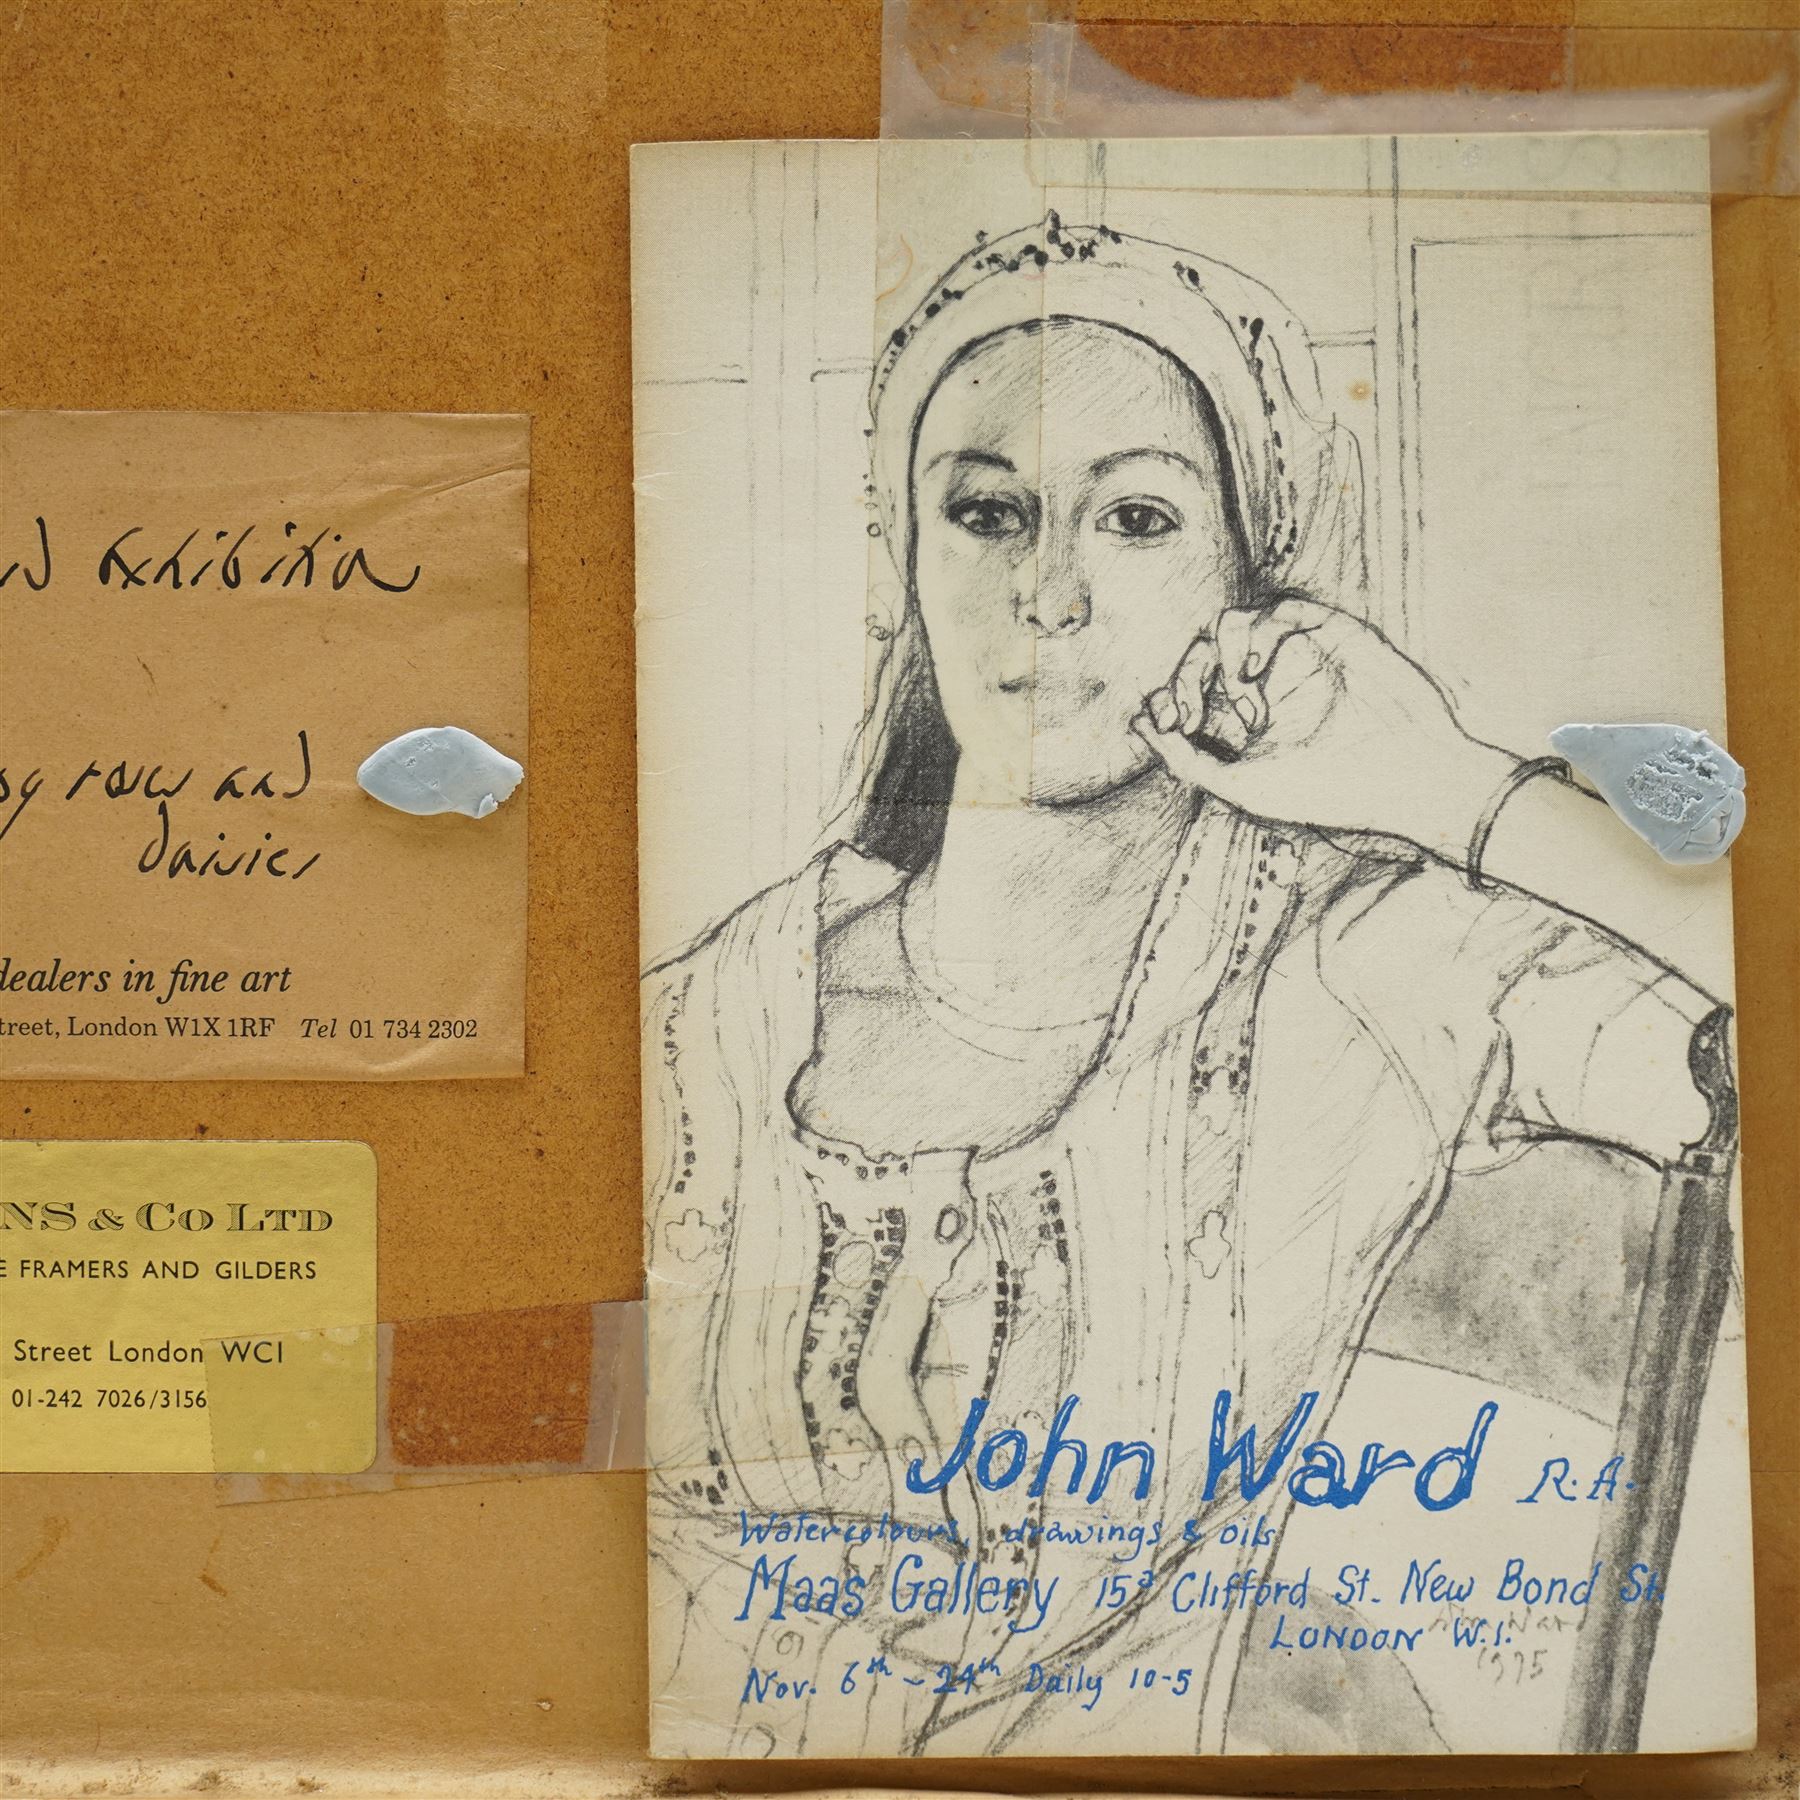 Exhibition
row and
daisies
dealers in fine art
treet, London W1X 1RF Tel 01 734 2302
NS & Co LTD
E FRAMERS AND GILDERS
Street London WC1
01-242 7026/3156
John Ward R.A.
Watercolours, drawings & oils
Maas Gallery 15a Clifford St. New Bond St.
LONDON W.1.
Nov. 6th - 24th Daily 10-5
John Ward
1975